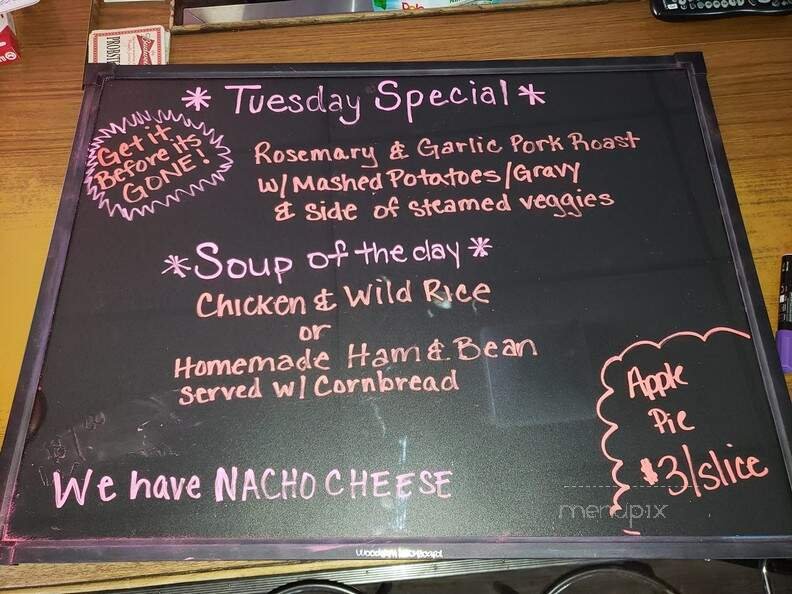 * Tuesday Special *
Get it
Before its
GONE!
Rosemary & Garlic Pork Roast
w/ Mashed Potatoes/Gravy
& Side of steamed veggies
*Soup of the day*
Chicken & Wild Rice
or
Homemade Ham & Bean
served w/ Cornbread
Apple
Pie
$3/slice
We have NACHO CHEESE
menupix